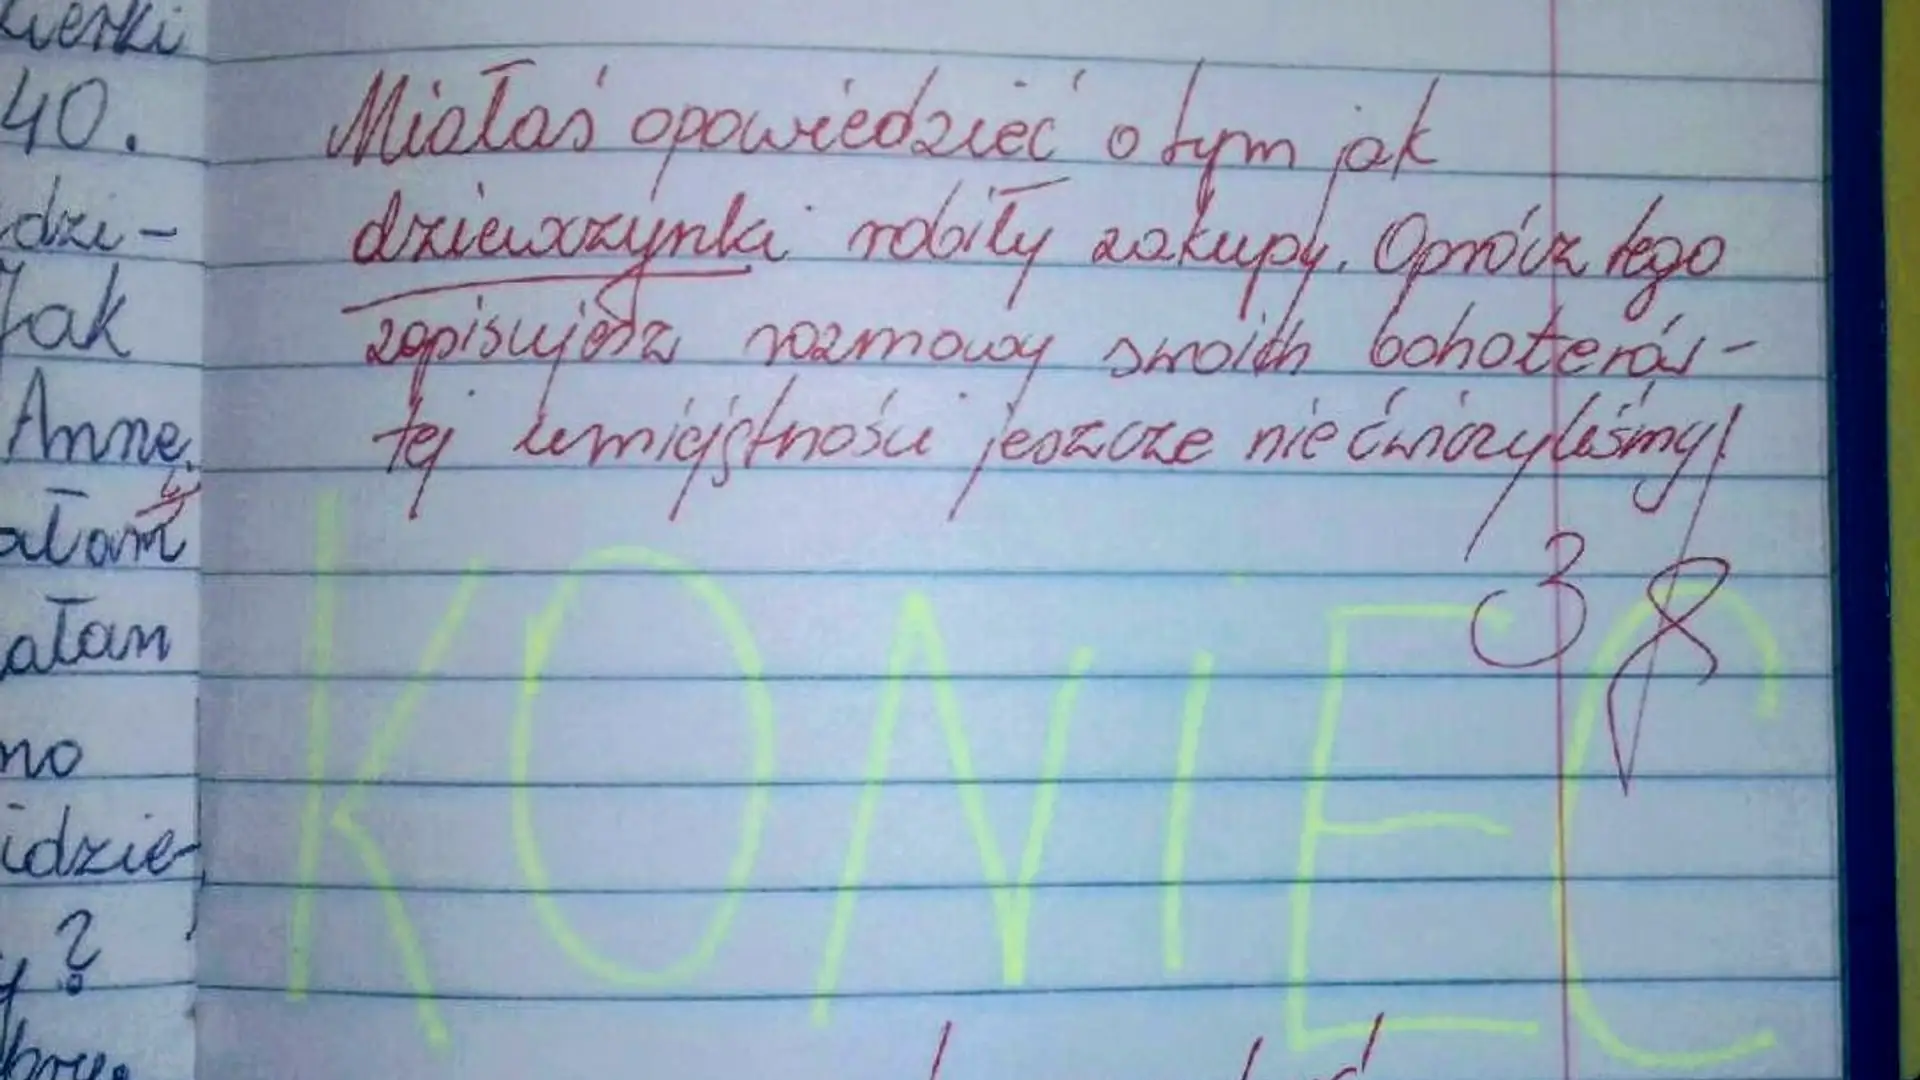 40.
dzi-
Jak
Annę.
atam
atam
no
idzie-
?
Miałaś opowiedzieć o tym jak
dziewczynki robiły zakupy. Oprócz tego
zapisujesz rozmowy swoich bohaterów -
tej umiejętności jeszcze nie ćwiczyliśmy!
3
KONIEC